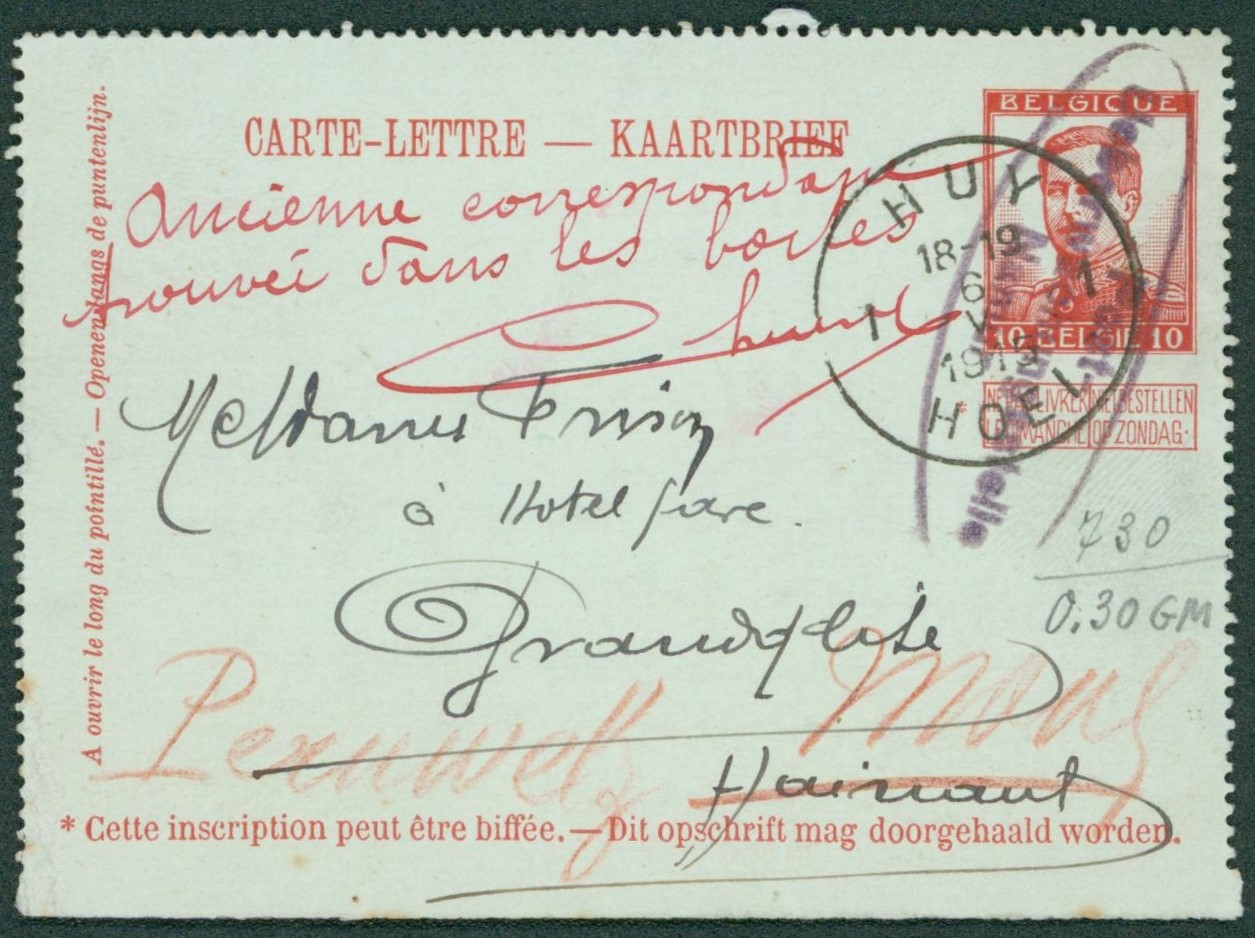 CARTE-LETTRE — KAARTBRIEF
BELGIQUE
10 BELGIË 10
NE PAS LIVRER LE DIMANCHE
NIET BESTELLEN OP ZONDAG
A ouvrir le long du pointillé. — Openen langs de puntenlijn.
Ancienne correspondance
trouvée dans les boites
HUY
18-19
6
V
1915
1 1
HOEI
Mesdames Frison
à Hotel gare.
Grandglise
Hainaut
Peruwelz
Mons
730
0.30 GM
* Cette inscription peut être biffée. — Dit opschrift mag doorgehaald worden.